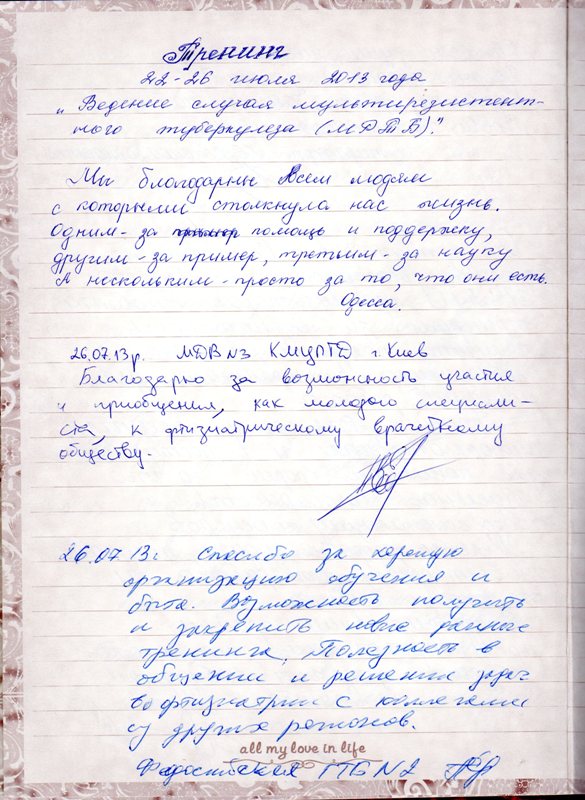 Тренинг
22-26 июля 2013 года
„Ведение случая мультирезистент-
ного туберкулеза (МРТБ)."
Мы благодарны Всем людям
с которыми столкнула нас жизнь.
Одним - за помощь и поддержку,
другим - за пример, третьим - за науку
А нескольким - просто за то, что они есть.
Одесса.
26.07.13р. МДВ №3 КМЦПТД г. Киев
Благодарю за возможность участия
и приобщения, как молодого специали-
ста, к фтизиатрическому врачебному
обществу.
26.07.13г Спасибо за хорошую
организацию обучения и
быта. Возможность получить
и закрепить новые данные
тренинга. Полезность в
общении и решении задач
во фтизиатрии с коллегами
из других регионов.
all my love in life
Феодосийская ГТБ №2